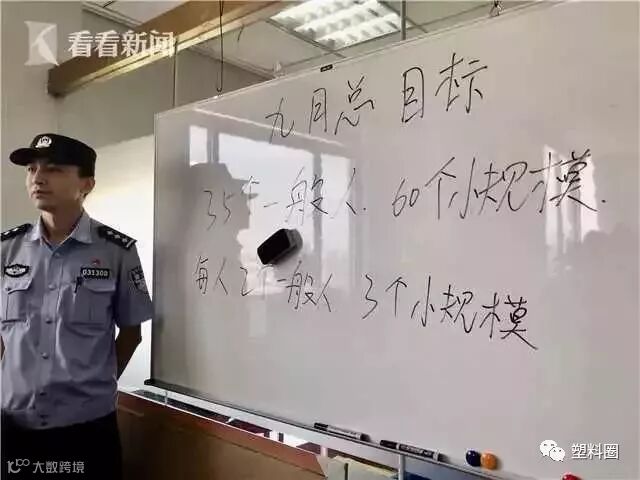 看看新闻
九月总目标
35个一般人. 60个小规模.
每人2个一般人 3个小规模
031303
大数跨境
塑料圈